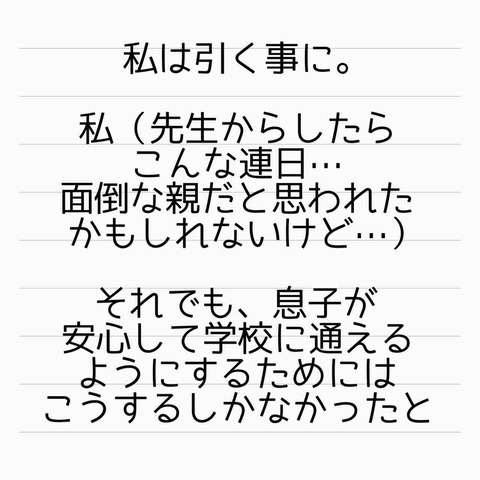 私は引く事に。
私（先生からしたら
こんな連日…
面倒な親だと思われた
かもしれないけど…）
それでも、息子が
安心して学校に通える
ようにするためには
こうするしかなかったと